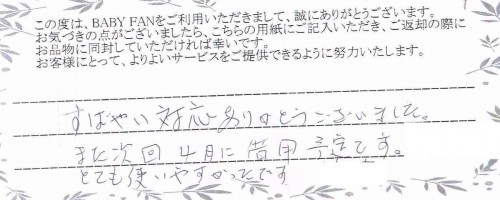 この度は、BABY FANをご利用いただきまして、誠にありがとうございます。
お気づきの点がございましたら、こちらの用紙にご記入いただき、ご返却の際に
お品物に同封していただければ幸いです。
お客様にとって、よりよいサービスをご提供できるように努力いたします。
すばやい対応ありがとうございました。
また次回4月に借用予定です。
とても使いやすかったです